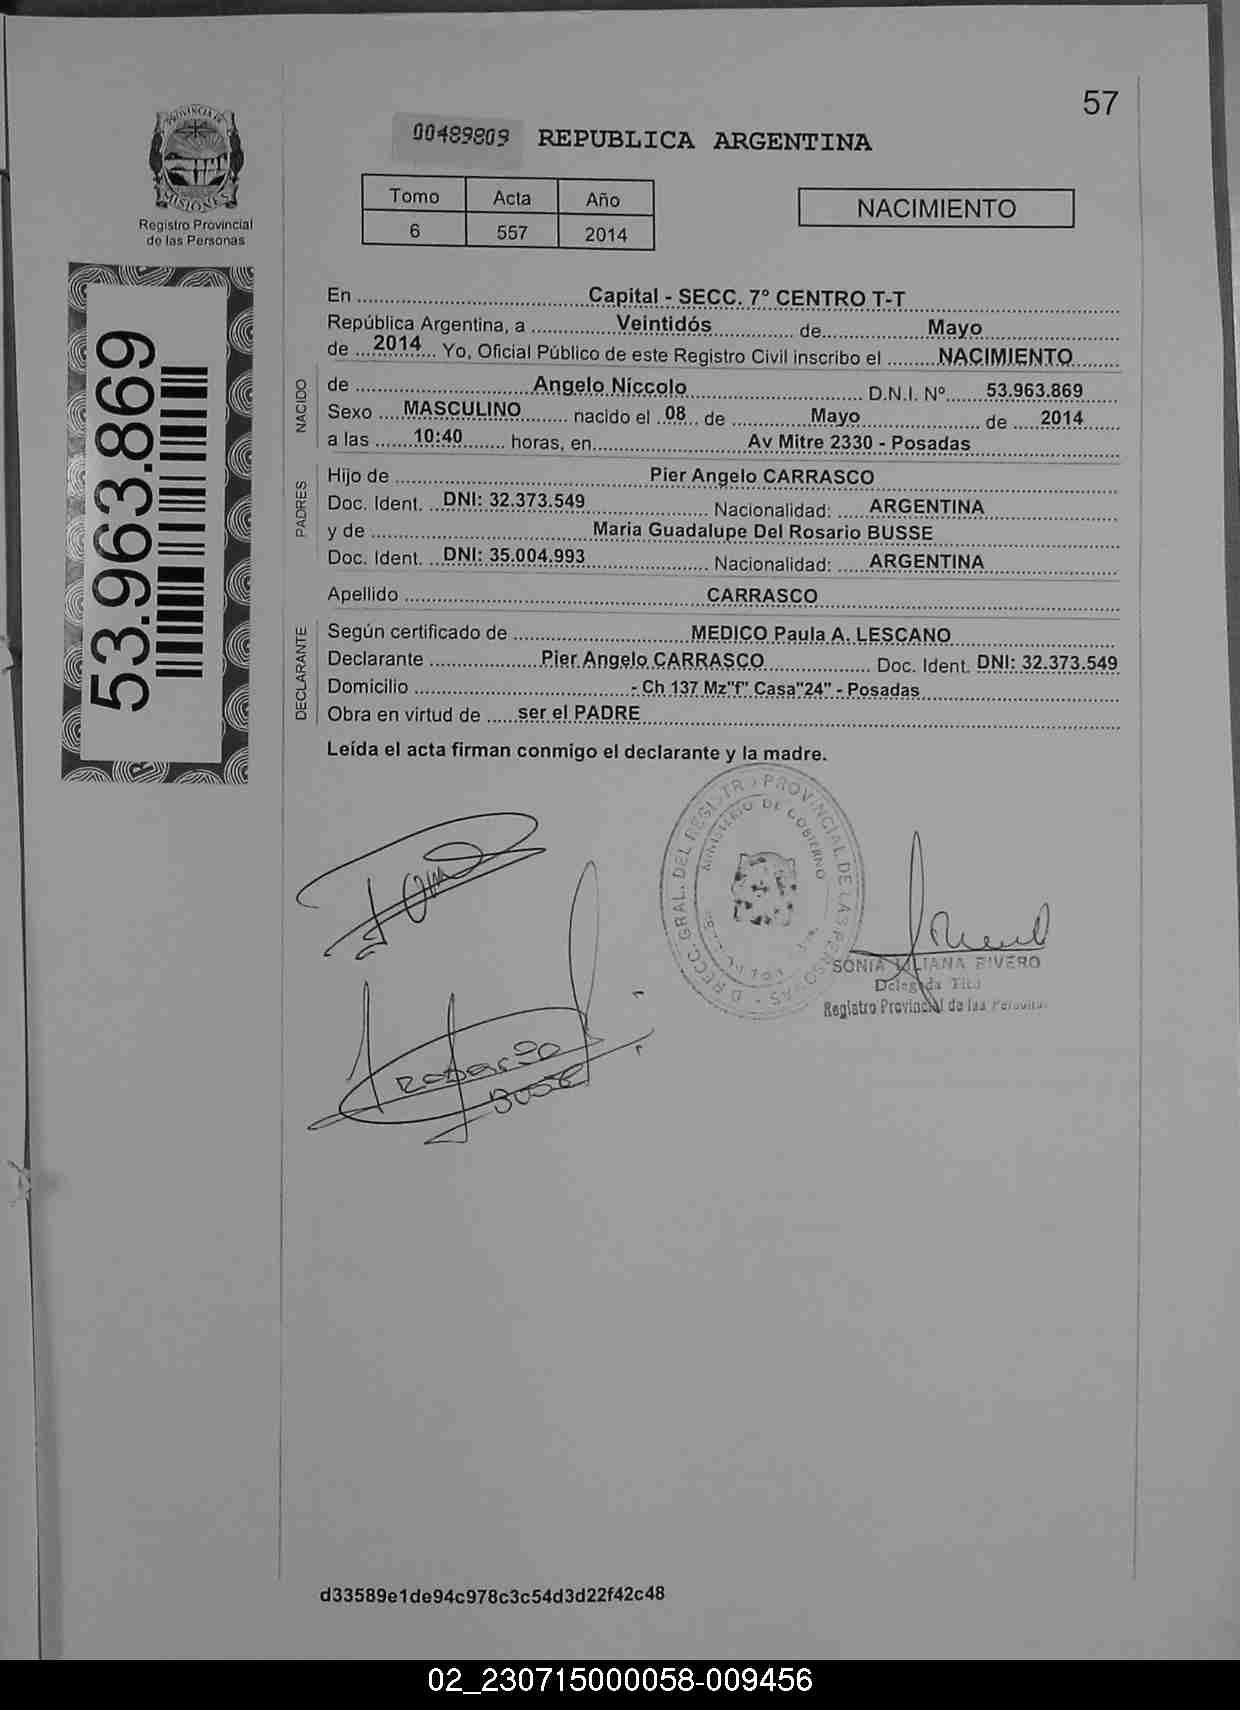 57
PROVINCIA DE
MISIONES
Registro Provincial
de las Personas
00489809 REPUBLICA ARGENTINA
Tomo Acta Año
6 557 2014
NACIMIENTO
53.963.869
En Capital - SECC. 7º CENTRO T-T
República Argentina, a Veintidós de Mayo
de 2014 Yo, Oficial Público de este Registro Civil inscribo el NACIMIENTO
NACIDO
de Angelo Niccolo D.N.I. Nº 53.963.869
Sexo MASCULINO nacido el 08 de Mayo de 2014
a las 10:40 horas, en Av Mitre 2330 - Posadas
PADRES
Hijo de Pier Angelo CARRASCO
Doc. Ident. DNI: 32.373.549 Nacionalidad: ARGENTINA
y de Maria Guadalupe Del Rosario BUSSE
Doc. Ident. DNI: 35.004.993 Nacionalidad: ARGENTINA
Apellido CARRASCO
DECLARANTE
Según certificado de MEDICO Paula A. LESCANO
Declarante Pier Angelo CARRASCO Doc. Ident. DNI: 32.373.549
Domicilio - Ch 137 Mz"f" Casa"24" - Posadas
Obra en virtud de ser el PADRE
Leída el acta firman conmigo el declarante y la madre.
GRAL. DEL REGISTRO PROVINCIAL DE LAS PERSONAS
MINISTERIO DE GOBIERNO
SONIA LILIANA RIVERO
Delegada
Registro Provincial de las Personas
Rosario
Busse
d33589e1de94c978c3c54d3d22f42c48
02_230715000058-009456